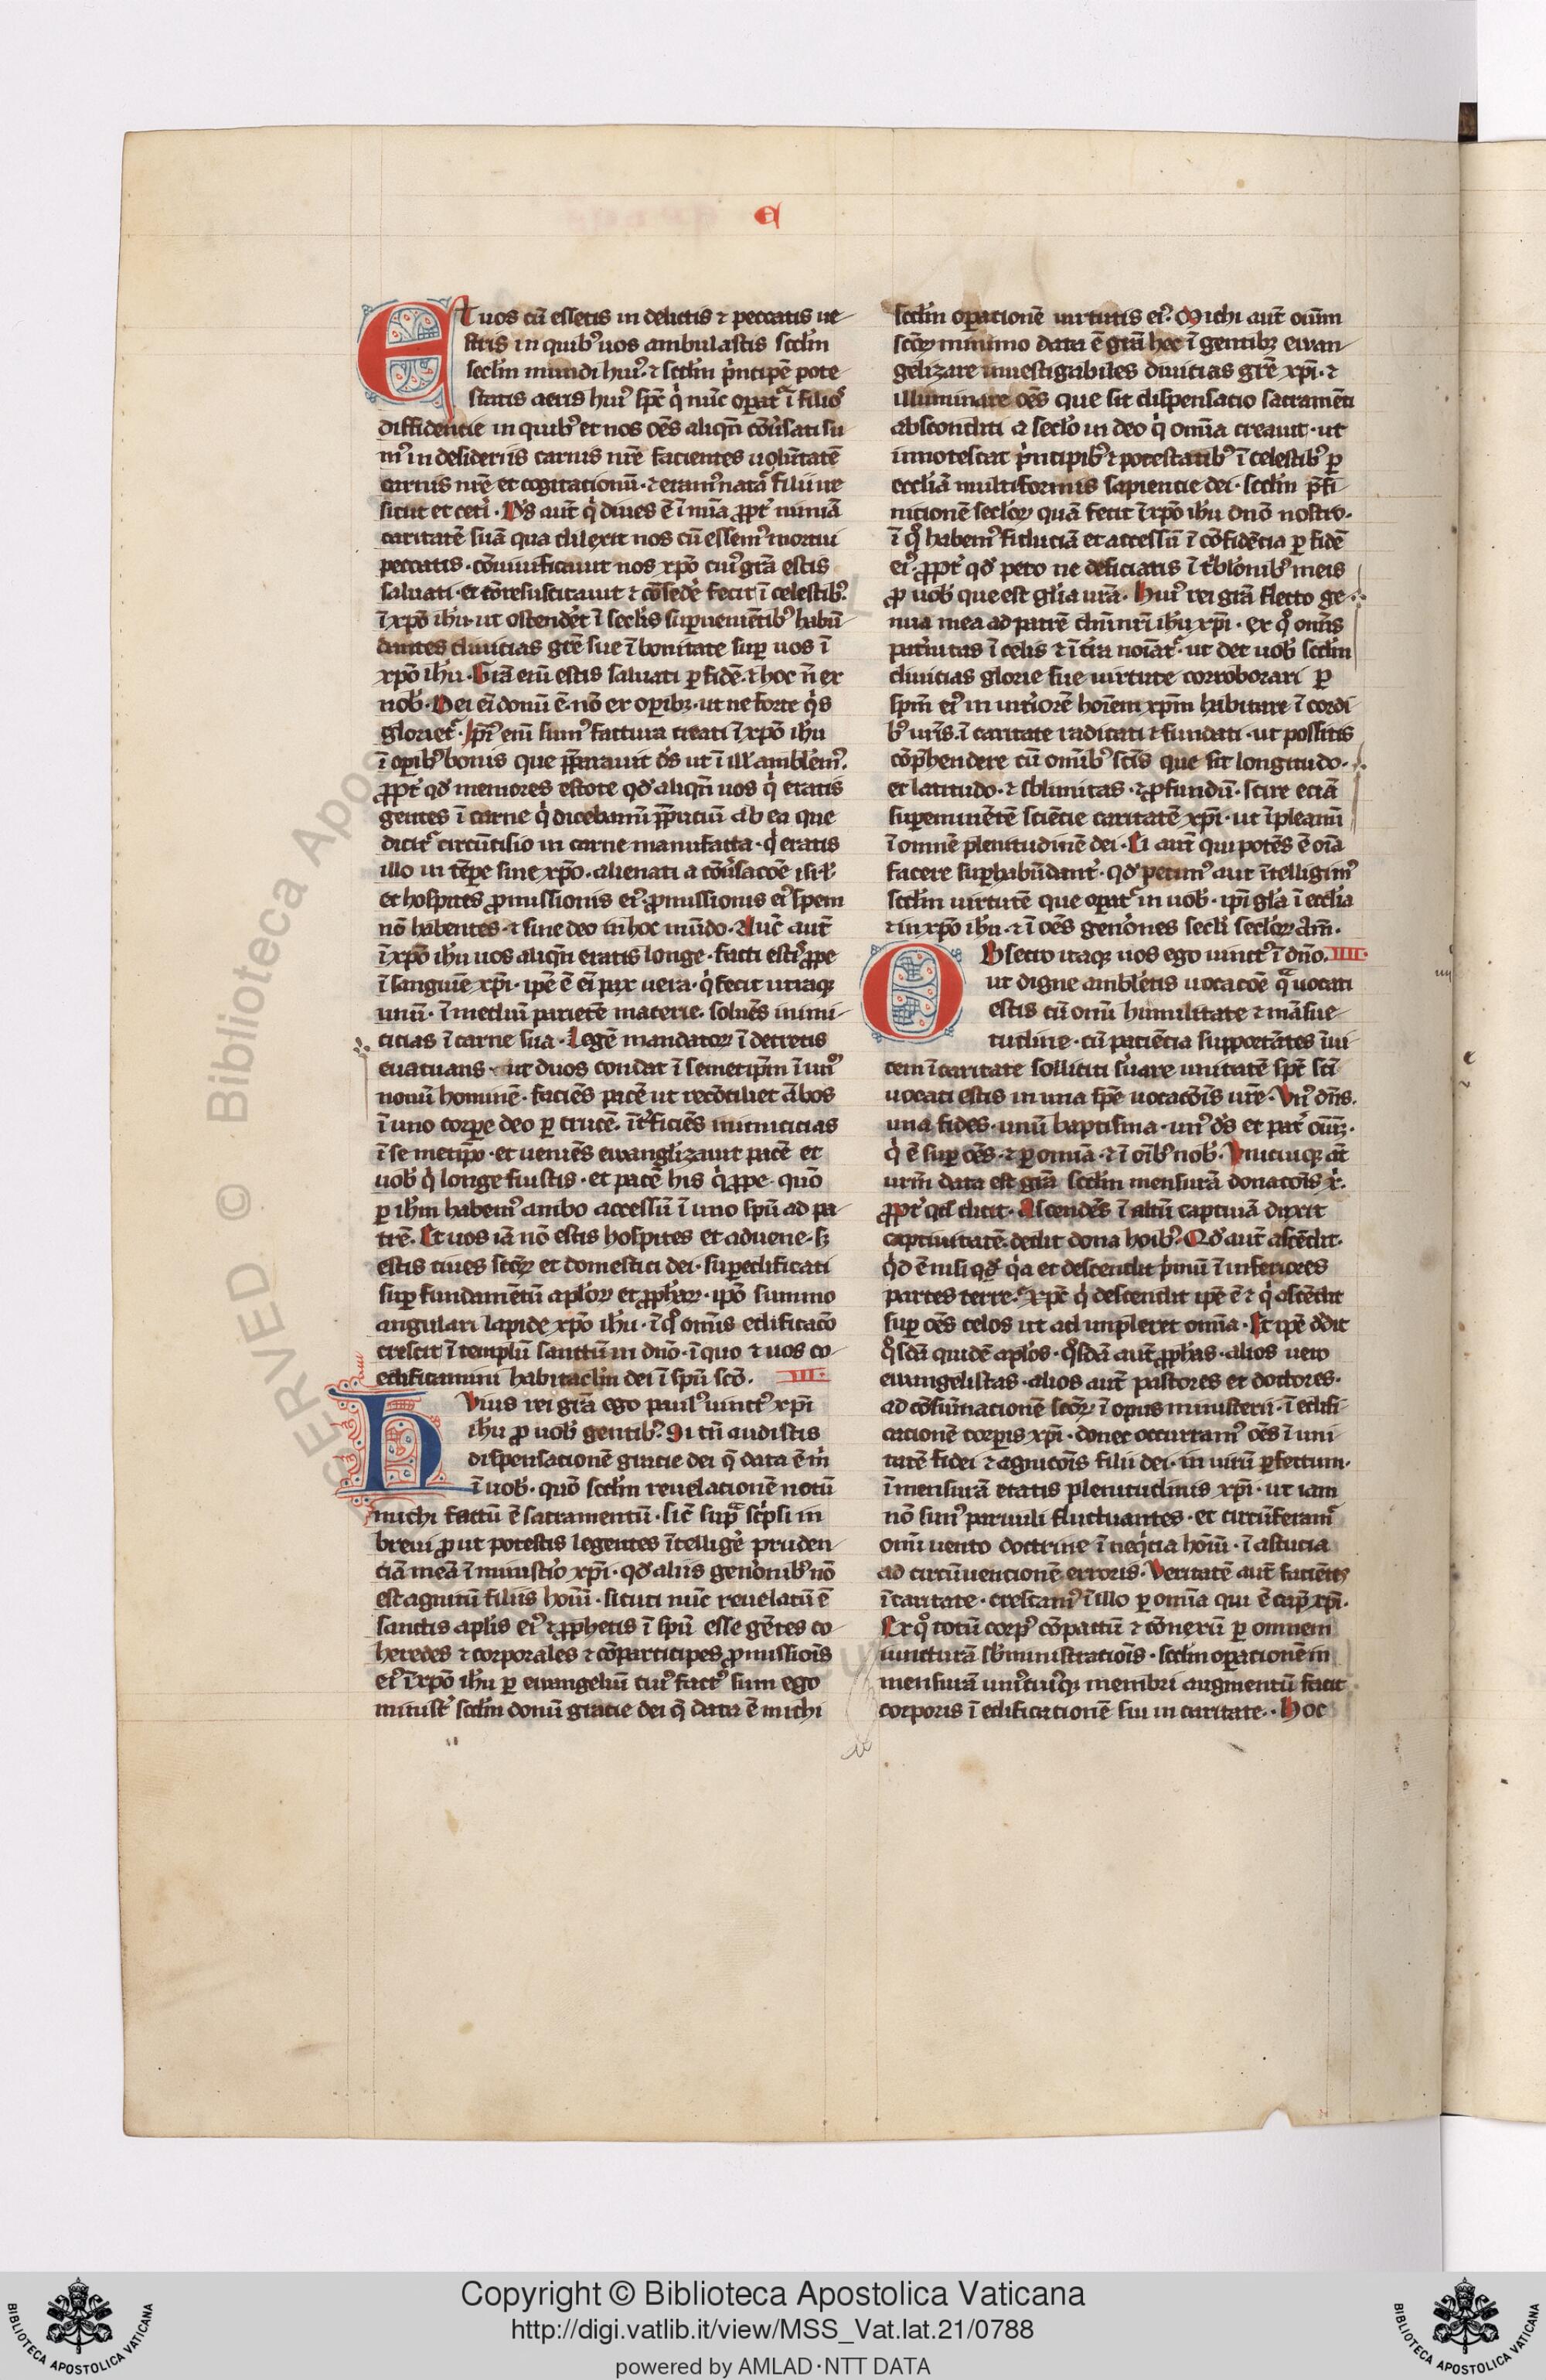 e
ET uos cū essetis in delictis ⁊ peccatis ue
stris in quibꝰ uos ambulastis scdm̄
seclm̄ mundi huiꝰ. ⁊ scdm̄ pͥncipē pote
statis aeris huiꝰ spc̄ qͥ nūc oꝑatʳ ī filioˢ
diffidencie in quibꝰ et nos oēs aliqn̄ cōuͥsati su
mꝰ in desideriis carnis nr̄e facientes uolūtatē
carnis nr̄e et cogitacionū. ⁊ eramꝰ natᵃ filii ire
sicut et cetͥ. Ds̄ aut̄ qͥ diues ē ī mīa ꝓpt̄ nimiā
caritatē suā qua dilexit nos cū essemꝰ mortui
peccatis. cōuiuificauit nos xp̄o cuiꝰ grā estis
saluati. et cōresuscitauit ⁊ cōsede̾ fecit ī celestibꝰ.
ī xp̄o ih̄u. ut ostende̾t ī secl̄is suꝑuenietibꝰ habū
dantes diuicias gr̄e sue ī bonitate suꝑ uos ī
xp̄o ih̄u. Grā eni estis saluati ꝑ fidē. ⁊ hoc n̄ ex
nob̾. Dei eī donū ē. nō ex oꝑibꝫ. ut ne forte qͥs
glorietʳ. Ip̄iꝰ eni sumꝰ factura creati ī xp̄o ih̄u
ī oꝑibꝰ bonis que p̄parauit ds̄ ut ī ill̾ ambl̾emꝰ.
ꝓpt̾ qd̾ memores estote qd̾ aliqn̄ uos qͥ eratis
gentes ī carne qͥ dicebamī p̄puciū ab ea que
dicitʳ circūcisio in carne manufacta. qͥ eratis
illo in tēꝑe sine xp̄o. alienati a cōuͥsacōe isr̾l̾.
et hospites ꝓmissionis eiꝰ. ꝓmissionis eiꝰ spem
nō habentes. ⁊ sine deo in hoc mūdo. Nūc aut̄
ī xp̄o ih̄u uos aliqn̄ eratis longe. facti estͥ ꝓpe
ī sanguīe xp̄i. ip̄e ē eī pax uera. qͥ fecit utraqꝫ
unū. ī mediū parietē macerie. soluēs inimi
cicias ī carne sua. Legē mandatoꝝ ī decretis
euacuans. ut duos condat ī semetip̄m ī unꝰ
nouū hominē. faciēs pacē ut recōciliet ābos
ī uno corꝑe deo ꝑ crucē. īt̾ficiēs inimicicias
ī se metip̄o. et ueniēs ewanglizauit pacē et
uob̾ qͥ longe fuistis. et pacē his qͥ ꝓpe. quō
ꝑ ih̄m habemꝰ ambo accessū ī uno spū ad pa
trē. Et uos iā nō estis hospites et aduene. sꝫ
estis ciues scōꝝ et domestici dei. suꝑedificati
suꝑ fundamētū apl̾oꝝ et ꝓph̾aꝝ. ip̄o summo
angulari lapide xp̄o ih̄u. ī qͦ omīs edificacō
crescit ī templū sanctū in dn̄o. ī quo ⁊ uos co
edificamini habitaclm̄ dei ī spū scō. III.
HVius rei grā ego paulꝰ uinctꝰ xp̄i
ih̄u ꝓ uob̾ gentibꝰ. Si tn̄ audistis
dispensacionē gracie dei q̄ data ē mͥ
ī uob̾. quō scdm̄ reuelacionē notū
michi factū ē sacramentū. sic̄ supᵃ scͥpsi in
breui ꝓut potestis legentes ītellige̾ pruden
ciā meā ī ministͥo xp̄i. qd̾ aliis gen̾onibꝰ nō
est agnitū filiis hoīū. sicuti nūc reuelatū ē
sanctis apl̾is eiꝰ ⁊ ꝓphetis ī spū esse gētes co
heredes ⁊ corporales ⁊ cōparticipes ꝓmissiois
eiꝰ ī xp̄o ih̄u ꝑ euangeliū cuiꝰ factꝰ sum ego
minist̾ scdm̄ donū gracie dei q̄ data ē michi
scdm̄ oꝑacionē uirtutis eiꝰ. Michi aut̄ oīum
scōꝝ minimo data ē grā hec ī gentibꝫ ewan
gelizare inuestigabiles diuicias gr̄e xp̄i. ⁊
illuminare oēs que sit dispensacio sacramēti
absconditi a secl̾o in deo qͥ omīa creauit. ut
innotescat pͥncipibꝰ ⁊ potestatibꝰ ī celestibꝰ ꝑ
eccl̾iā multiformis sapiencie dei. scdm̄ p̄fi
nicionē secl̾oꝝ quā fecit ī xp̄o ih̄u dn̄o nostro.
ī qͦ habemꝰ fiduciā et accessū ī cōfidēcia ꝑ fidē
eiꝰ. ꝓpt̾ qd̾ peto ne deficiatis ī tͥbl̾onibꝰ meis
ꝓ uob̾ que est gl̾ia ur̄a. Huiꝰ rei grā flecto ge
nua mea ad patrē dn̄i nr̄i ih̄u xp̄i. ex qͦ omīs
pat̾nitas ī celis ⁊ ī t̾ra noīatʳ. ut det uob̾ scdm̄
diuicias glorie sue uirtute corroborari ꝑ
spm̄ eiꝰ in int̾iorē hoīem xp̄m habitare ī cordi
bꝰ ur̄is. ī caritate radicati ⁊ fundati. ut possitis
cōp̄hendere cū omībꝰ scīs que sit longitudo.
et latitudo. ⁊ sb̾limitas. ⁊ ꝓfundū. scire eciā
suꝑeminētē sciēcie caritatē xp̄i. ut īpleamī
ī omnē plenitudinē dei. Ei aut̄ qui potēs ē oīa
facere suꝑhabūdant̾. qd̾ petimꝰ aut ītelligimꝰ
scdm̄ uirtutē que oꝑatʳ in uob̾. ip̄i gl̾a ī eccl̾ia
⁊ in xp̄o ih̄u. ⁊ ī oēs gen̾ones secl̾i secl̾oꝝ am̄.
OBsecro itaqꝫ uos ego uinctꝰ ī dn̄o. IIII.
ut digne ambl̾etis uocacōe qᵃ uocati
estis cū omī humilitate ⁊ māsue
tudine. cū paciēcia supportātes īui
cem ī caritate solliciti s̾uare unitatē spc̄ scī
uocati estis in una spē uocacōis ur̄e. Vnꝰ dn̄s.
una fides. unū baptisma. unꝰ ds̄ et pat̾ oīūꝫ.
qͥ ē suꝑ oēs. ⁊ ꝑ omīa. ⁊ ī oībꝰ nob̾. Vnicuiqꝫ at̄
ur̄m data est grā scdm̄ mensurā donacōis x̾.
ꝓpt̾ qd̾ dicit. Ascendēs ī altū captiuā duxit
captiuitatē. dedit dona hoībꝰ. Qd̾ aut̄ ascēdit.
qͥd ē nisi qd̾ qͥa et descendit pͥmū ī inferiores
partes terre. Xp̄c qͥ descendit ip̄e ē ⁊ qͥ ascēdit
suꝑ oēs celos ut ad impleret omīa. Et ip̄e d̾dit
qͦsdā quidē apl̾os. qͦsdā aut̄ ꝓph̾as. alios uero
euuangelistas. alios aut̄ pastores et doctores.
ad cōsūmacionē scōꝝ ī opus ministerii. ī edifi
cacionē corꝑis xp̄i. donec occurramꝰ oēs ī uni
tatē fidei ⁊ agnicōis filii dei. in uirū ꝑfectum.
ī mensurā etatis plenitudinis xp̄i. ut iam
nō simꝰ paruuli fluctuantes. et circūferamʳ
omī uento doctrine ī neqͥcia hoīū. ī astucia
ad circūuencionē erroris. Veritatē aut̄ faciētꝫ
ī caritate. crescamꝰ ī illo ꝑ omīa qui ē capͩ xp̄i.
Ex qͦ totū corpꝰ cōpactū ⁊ cōnexū ꝑ omnem
iuncturā sb̾ministraciois. scdm̄ oꝑacionē in
mensurā uniꝰcuiꝰqꝫ membri augmentū facit
corporis ī edificacionē sui in caritate. Hoc
Copyright © Biblioteca Apostolica Vaticana
http://digi.vatlib.it/view/MSS_Vat.lat.21/0788
powered by AMLAD·NTT DATA
BIBLIOTECA APOSTOLICA VATICANA
BIBLIOTECA APOSTOLICA VATICANA